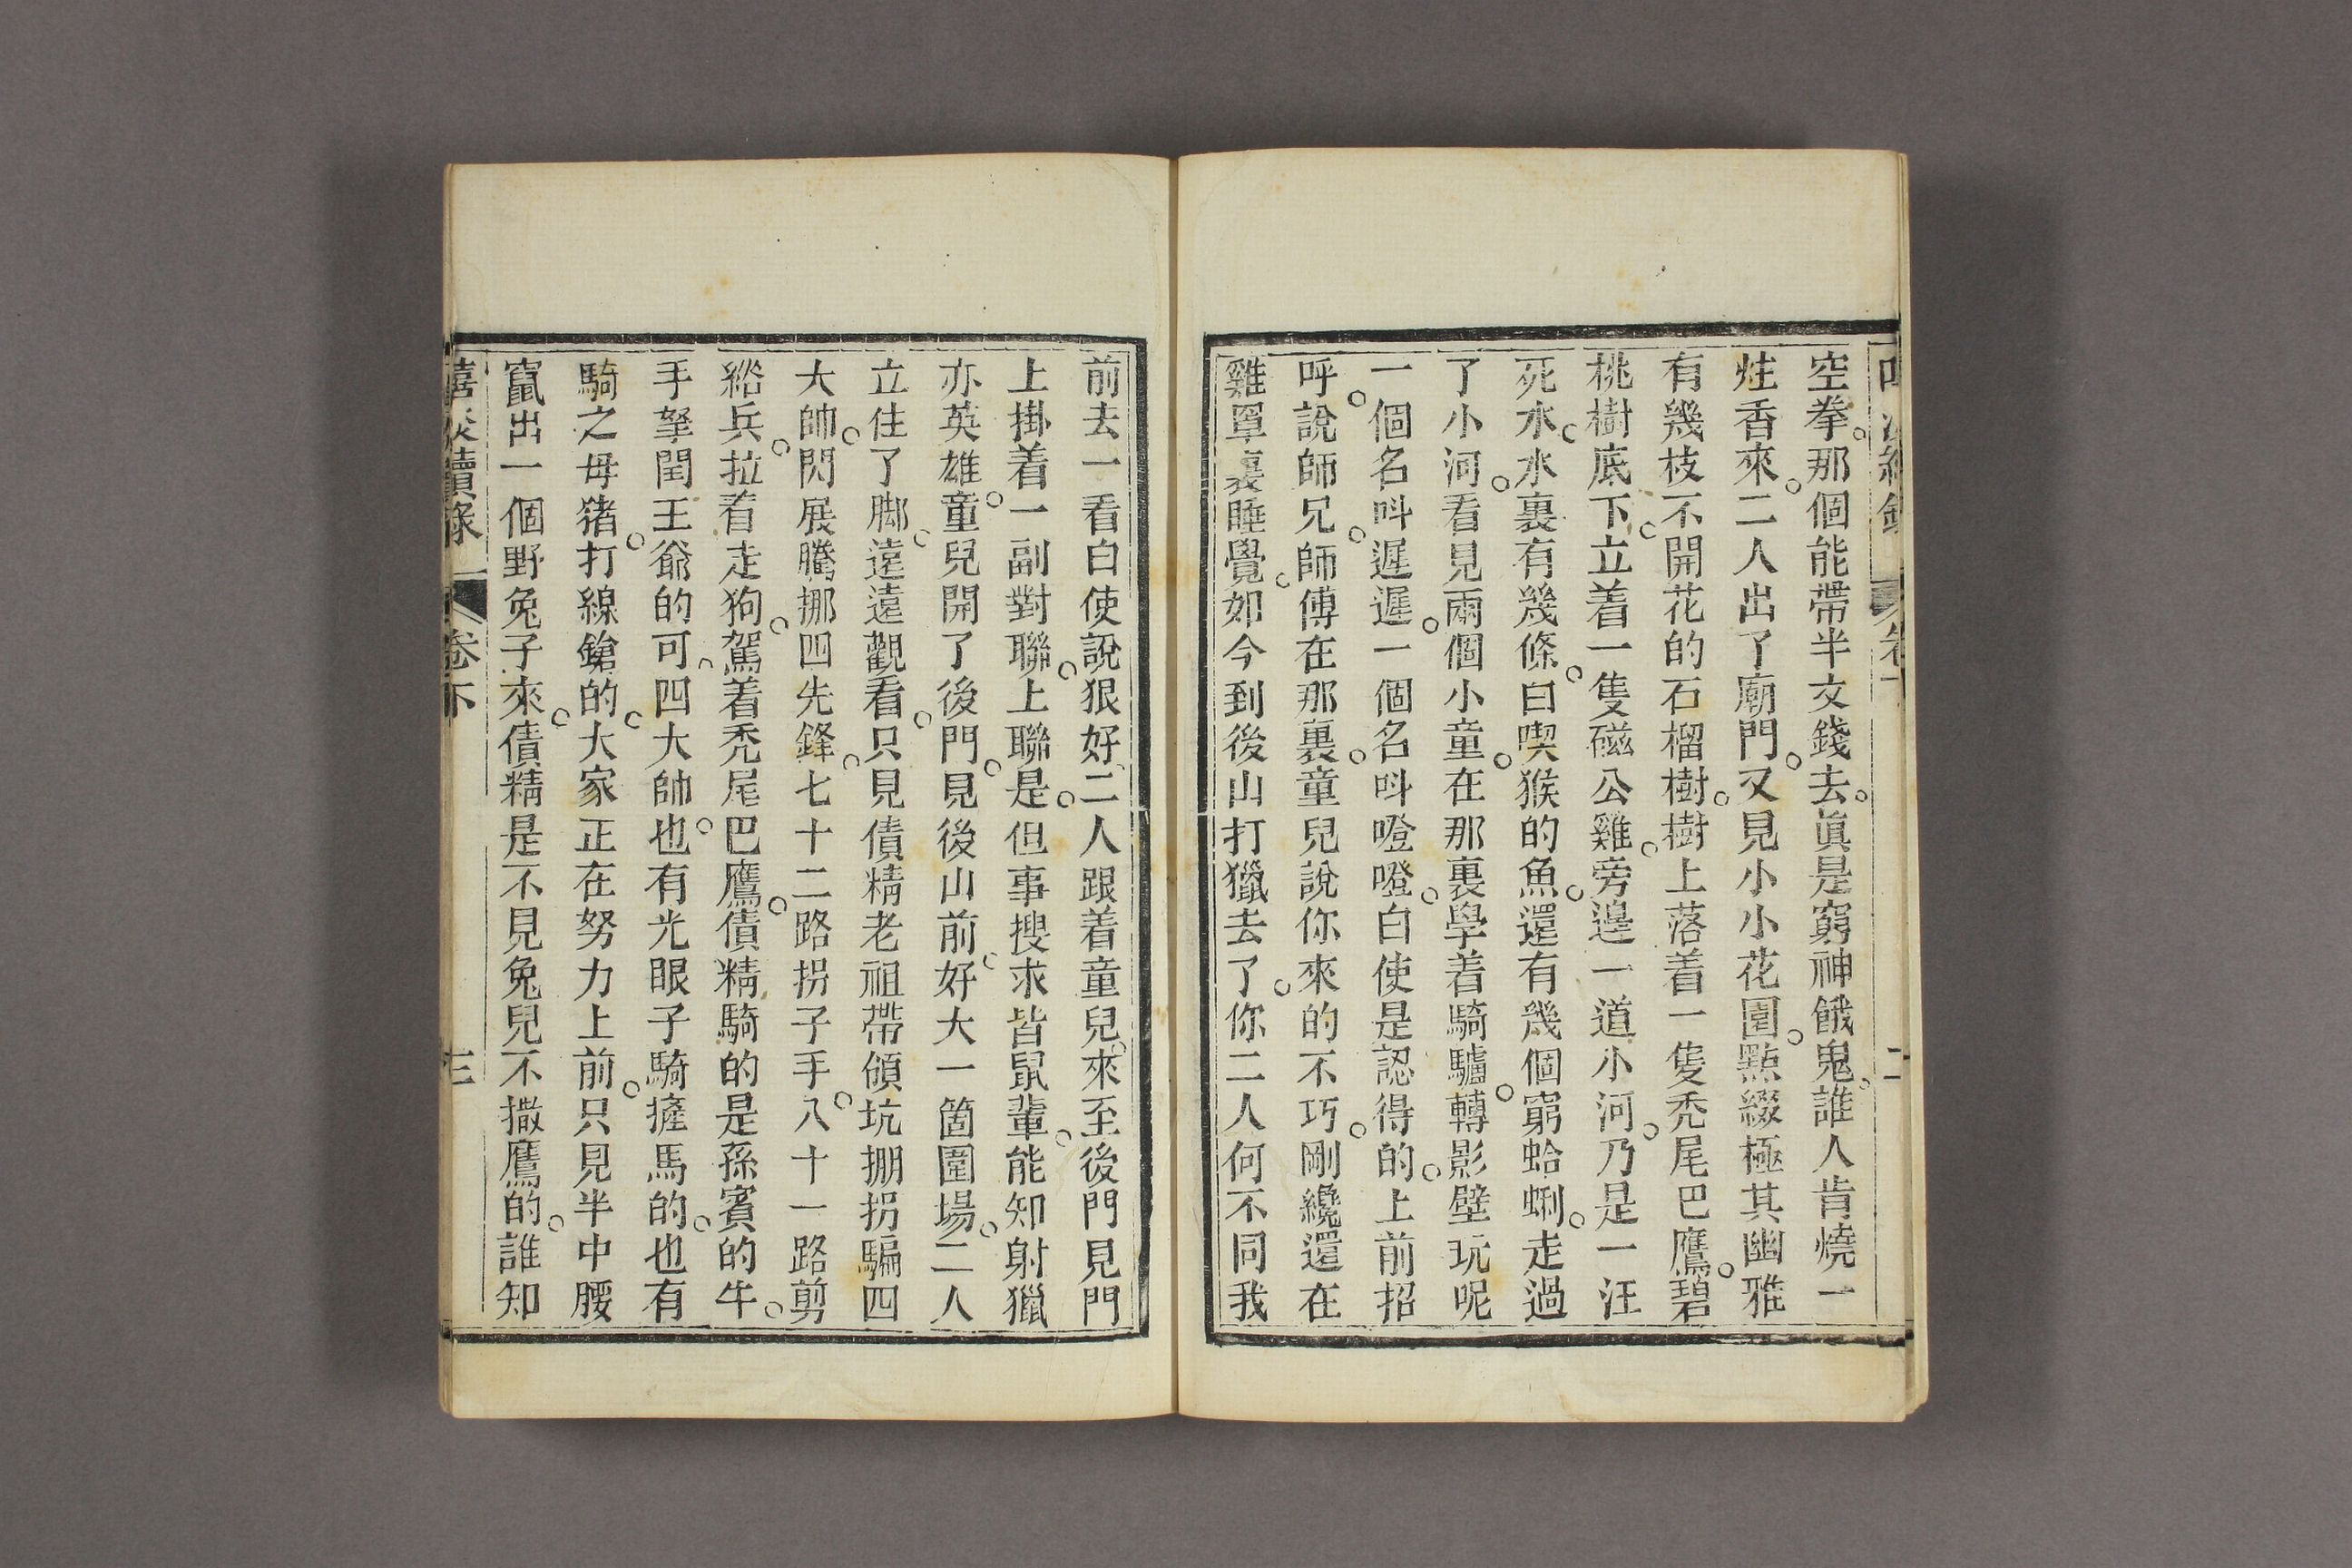 空拳那個能帶半文錢去眞是窮神餓鬼誰人肯燒一
炷香來二人出了廟門又見小小花園點綴極其幽雅
有幾枝不開花的石榴樹樹上落着一隻禿尾巴鷹碧
桃樹底下立着一隻磁公雞旁邊一道小河乃是一汪
死水水裏有幾條白喫猴的魚還有幾個窮蛤蜊走過
了小河看見兩個小童在那裏學着騎驢轉影壁玩呢
一個名呌遲遲一個名呌噔噔白使是認得的上前招
呼說師兄師傅在那裏童兒說你來的不巧剛纔還在
雞罩裏睡覺如今到後山打獵去了你二人何不同我
前去一看白使說狠好二人跟着童兒來至後門見門
上掛着一副對聯上聯是但事搜求皆鼠輩能知射獵
亦英雄童兒開了後門見後山前好大一箇圍場二人
立住了脚遠遠觀看只見債精老祖帶領坑掤拐騙四
大帥閃展騰挪四先鋒七十二路拐子手八十一路剪
綹兵拉着走狗駕着禿尾巴鷹債精騎的是孫賓的牛
手拏閏王爺的可四大帥也有光眼子騎㨘馬的也有
騎之母猪打線鎗的大家正在努力上前只見半中腰
竄出一個野兔子來債精是不見兔兒不撒鷹的誰知
嘻談續錄 卷下 三